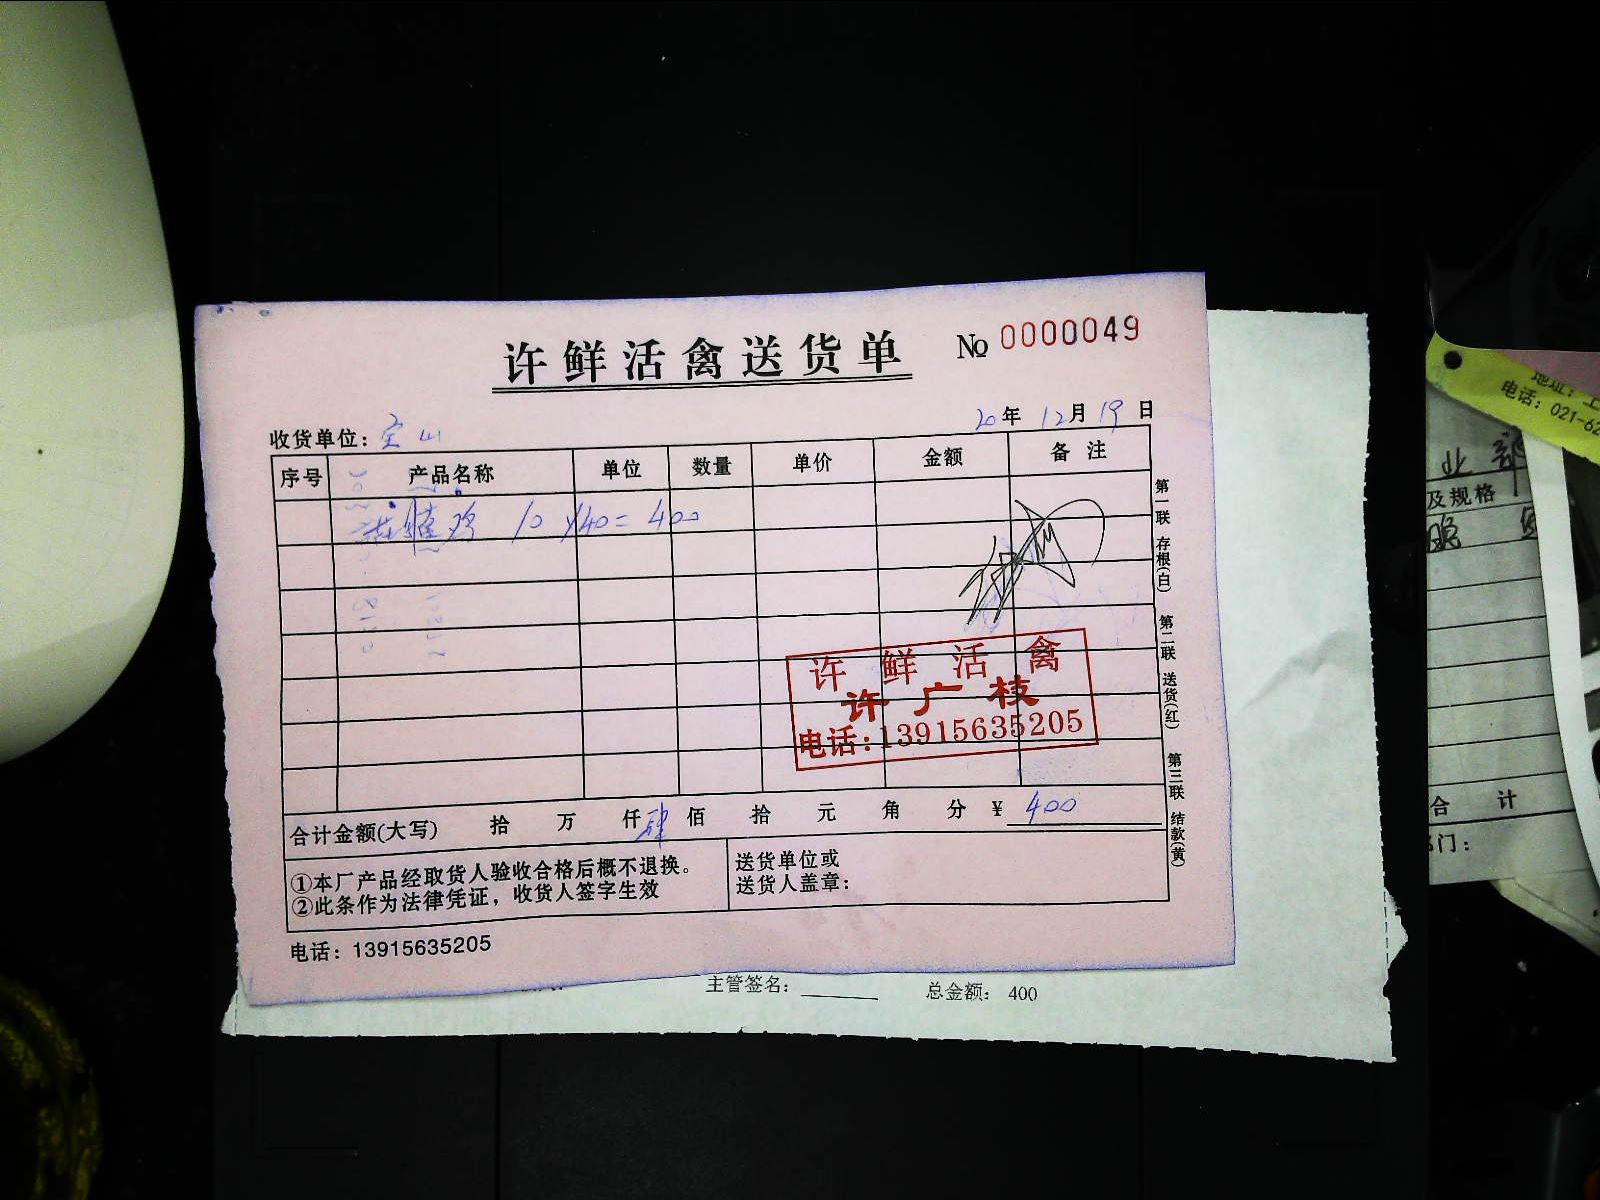 许鲜活禽送货单 № 0000049
收货单位：宝山 20年 12月 19日
序号 产品名称 单位 数量 单价 金额 备注
鸡 10 x 40 = 400
许鲜活禽
许广枝
电话:13915635205
合计金额(大写) 拾 万 仟 肆 佰 拾 元 角 分 ¥ 400
①本厂产品经取货人验收合格后概不退换。
②此条作为法律凭证，收货人签字生效
送货单位或
送货人盖章：
电话：13915635205
第一联 存根(白) 第二联 送货(红) 第三联 结款(黄)
主管签名： 总金额： 400
电话：021-62
业
及规格
合 计
部门：